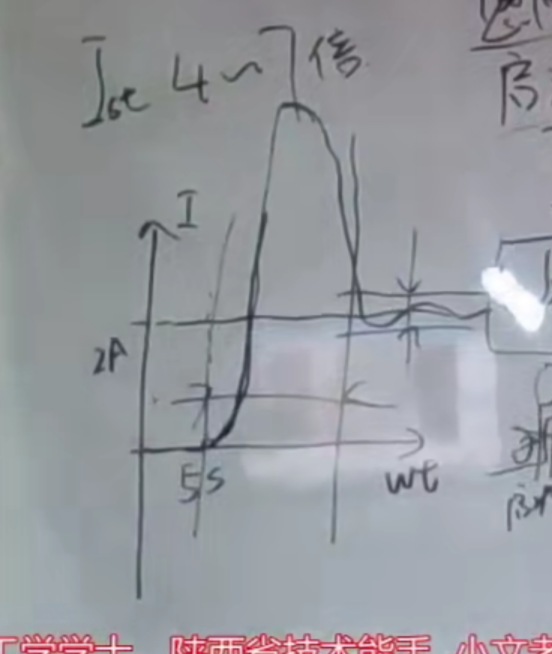 Ist 4~7倍
I
2A
5s
wt
工学学士 陕西省技术能手 小文老